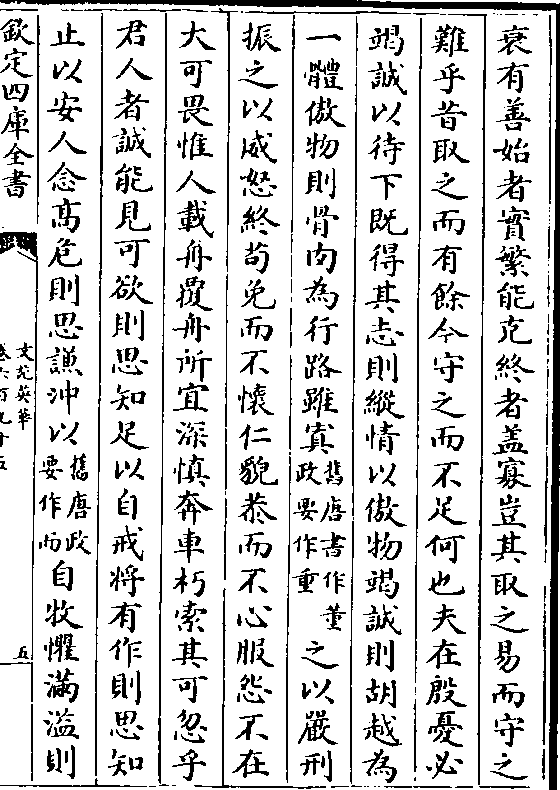 衰有善始者實繁能克終者盖寡豈其取之易而守之
難乎昔取之而有餘今守之而不足何也夫在殷憂必
竭誠以待下既得其志則縱情以傲物竭誠則胡越為
一體傲物則骨肉為行路雖寘舊唐書作董政要作重之以嚴刑
振之以威怒終苟免而不懷仁貌恭而不心服怨不在
大可畏惟人載舟覆舟所宜深慎奔車朽索其可忽乎
君人者誠能見可欲則思知足以自戒将有作則思知
止以安人念髙危則思謙沖以舊唐政要作而自牧懼滿溢則
欽定四庫全書
文苑英華
卷六百九十五
五